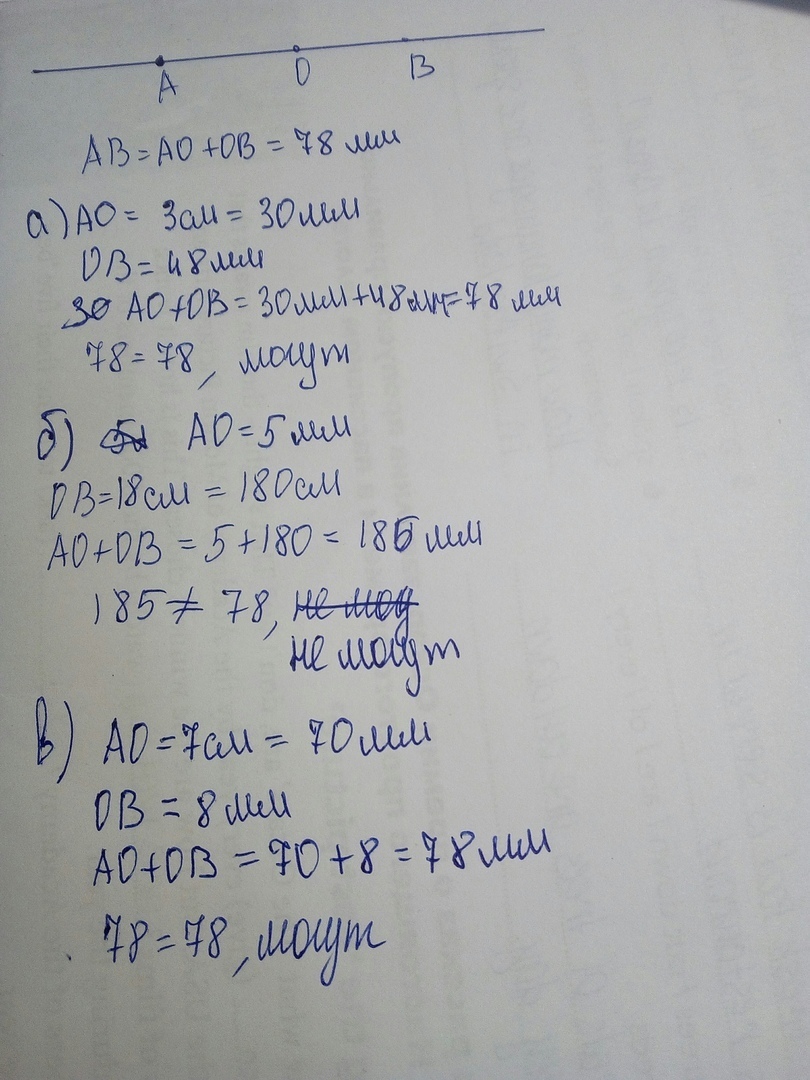 A O B
AB = AO + OB = 78 мм
а) AO = 3см = 30мм
OB = 48мм
30 AO + OB = 30мм + 48мм = 78 мм
78 = 78, могут
б) AO = 5мм
OB = 18см = 180см
AO + OB = 5 + 180 = 185 мм
185 ≠ 78, не мог
не могут
в) AO = 7см = 70мм
OB = 8мм
AO + OB = 70 + 8 = 78мм
78 = 78, могут